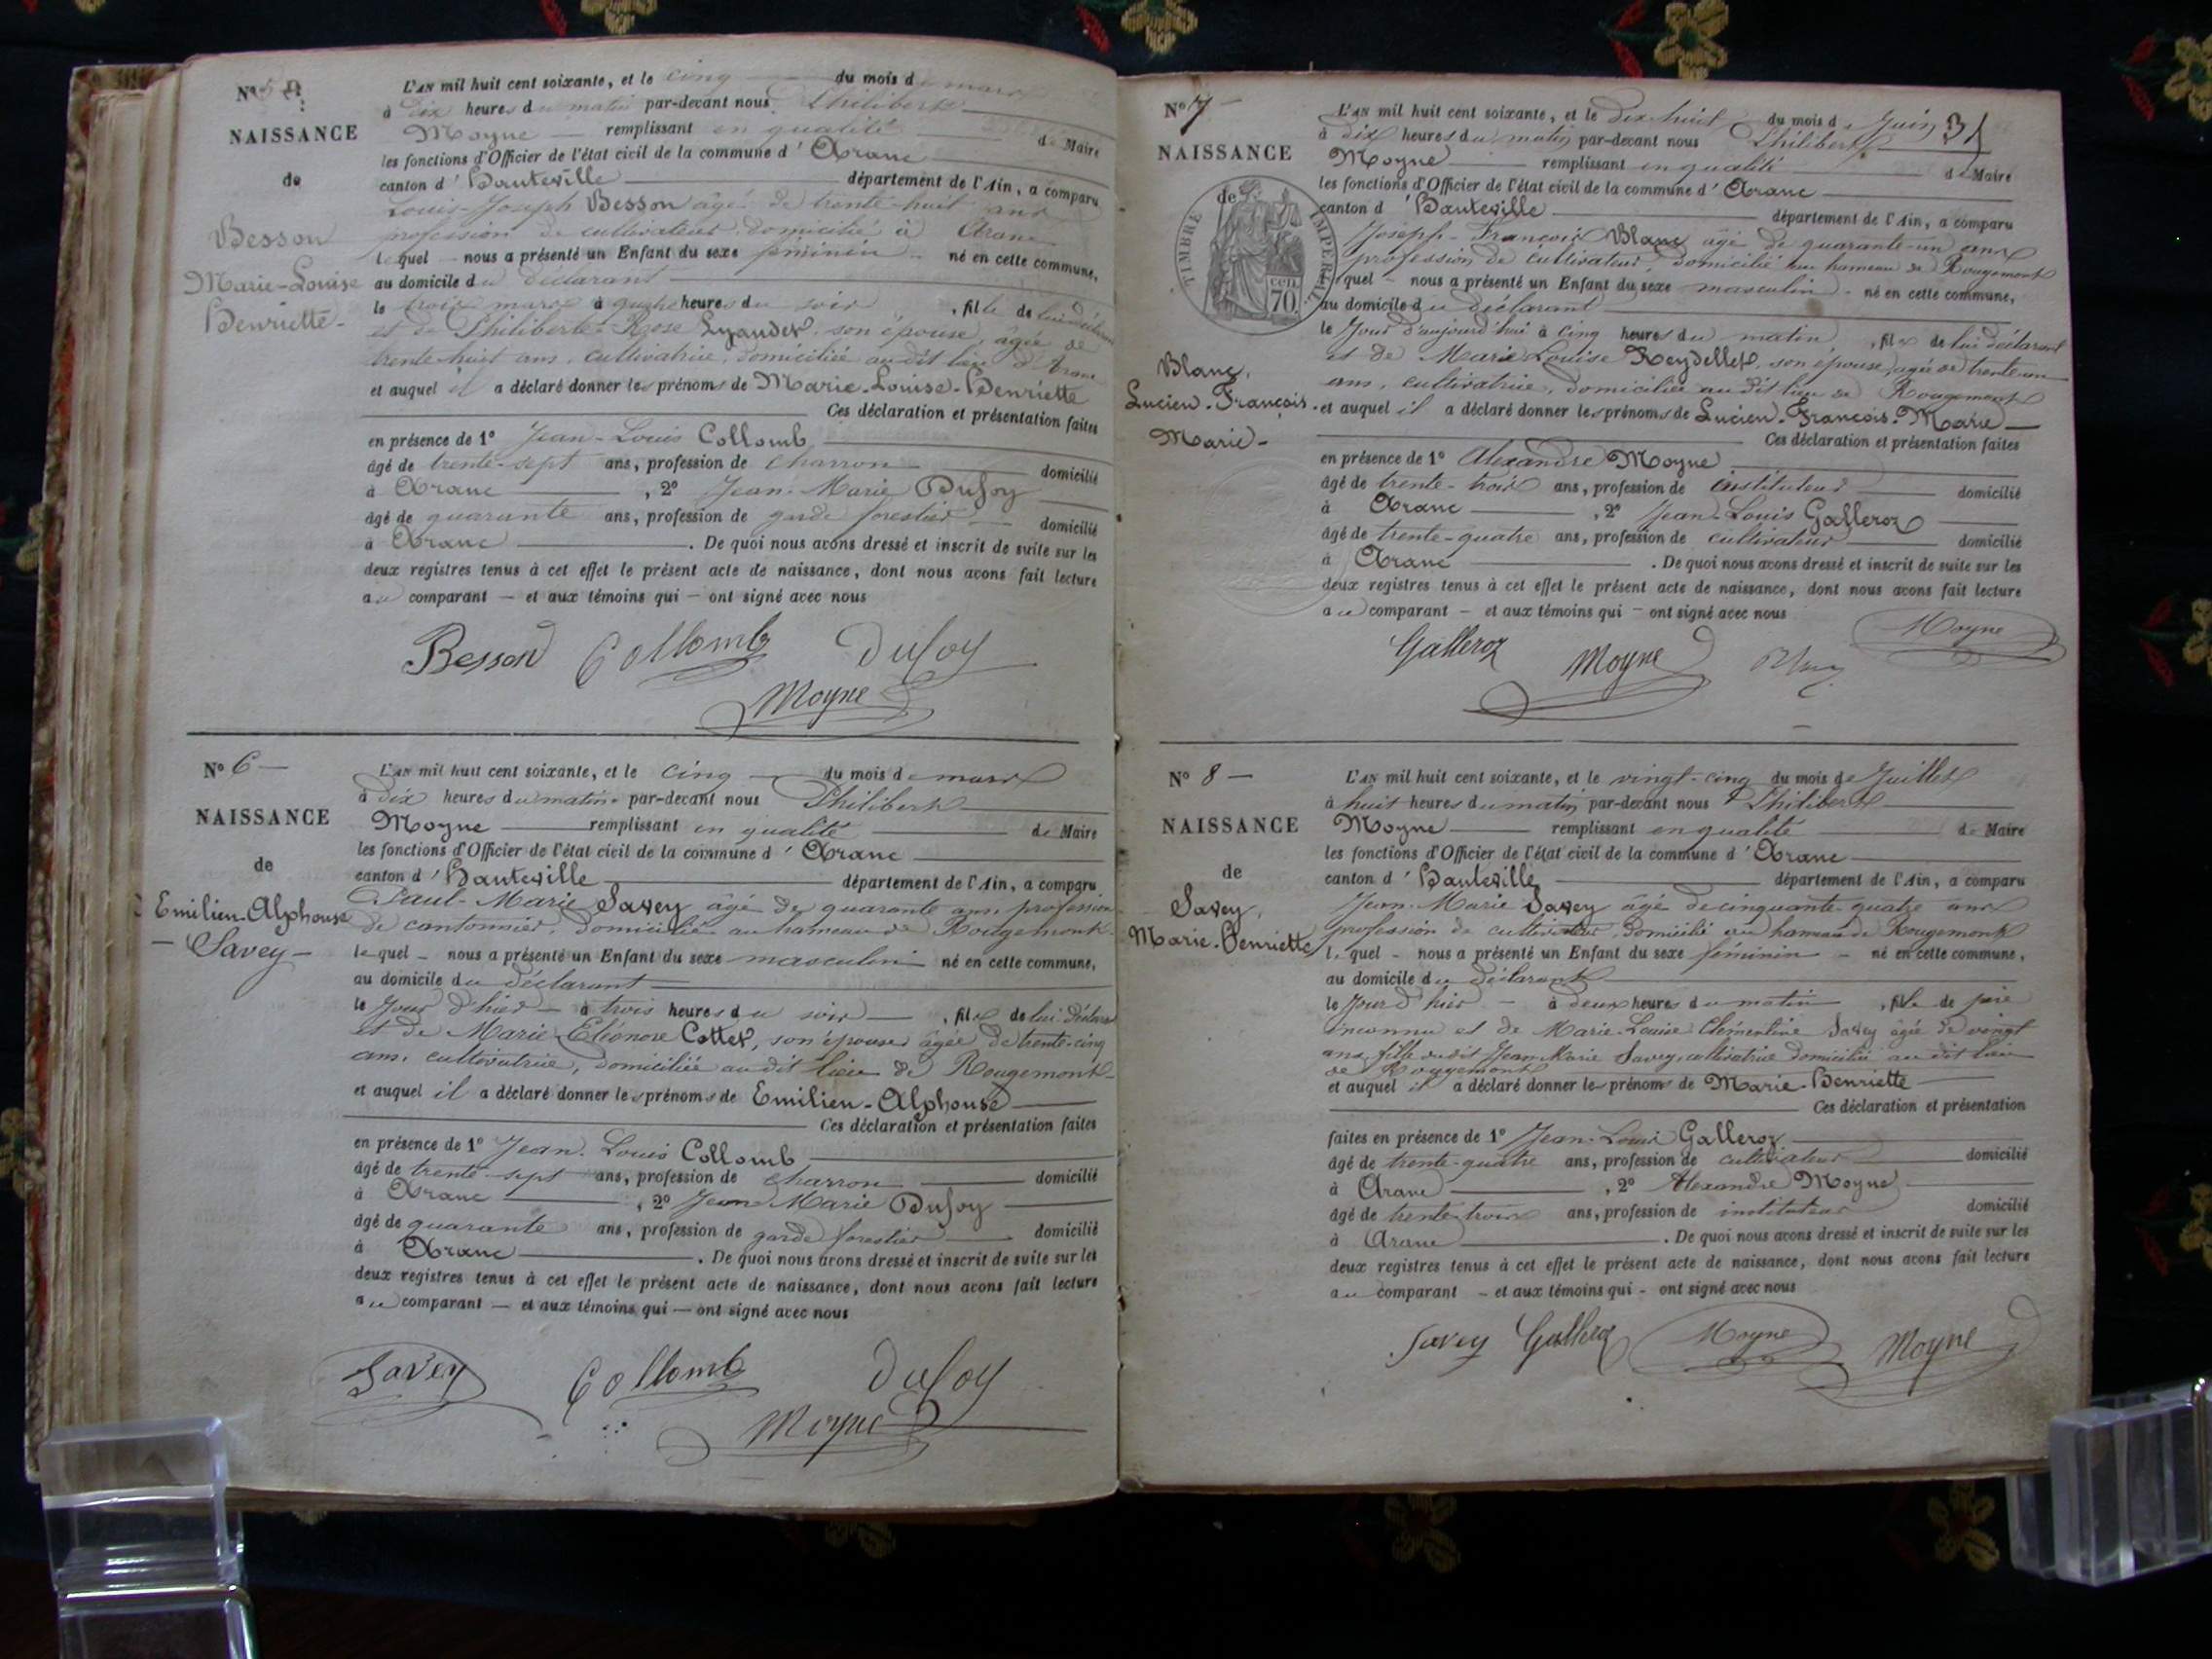 N° 5
NAISSANCE
de
Besson
Marie-Louise
Henriette -
L'AN mil huit cent soixante, et le cinq du mois de mars
à dix heures du matin par-devant nous Philibert
Moyne remplissant en qualité de Maire
les fonctions d'Officier de l'état civil de la commune d'Aranc
canton d'Hauteville département de l'Ain, a comparu
Louis-Joseph Besson âgé de trente-huit ans
profession de cultivateur domicilié à Aranc
lequel nous a présenté un Enfant du sexe féminin né en cette commune,
au domicile du déclarant
le trois mars à quatre heures du soir, fille de lui déclarant
et de Philiberte-Rose Lyaudet, son épouse, âgée de
trente-huit ans, cultivatrice, domiciliée audit lieu d'Aranc
et auquel il a déclaré donner les prénoms de Marie-Louise-Henriette
Ces déclaration et présentation faites
en présence de 1° Jean-Louis Collomb
âgé de trente-sept ans, profession de charron domicilié
à Aranc, 2° Jean-Marie Dufoy
âgé de quarante ans, profession de garde forestier domicilié
à Aranc. De quoi nous avons dressé et inscrit de suite sur les
deux registres tenus à cet effet le présent acte de naissance, dont nous avons fait lecture
au comparant - et aux témoins qui - ont signé avec nous
Besson Collomb Dufoy
Moyne
N° 6
NAISSANCE
de
Emilien-Alphonse
- Savey -
L'AN mil huit cent soixante, et le cinq du mois de mars
à dix heures du matin par-devant nous Philibert
Moyne remplissant en qualité de Maire
les fonctions d'Officier de l'état civil de la commune d'Aranc
canton d'Hauteville département de l'Ain, a comparu
Paul-Marie Savey âgé de quarante ans profession
de cantonnier, domicilié au hameau de Rougemont
lequel - nous a présenté un Enfant du sexe masculin né en cette commune,
au domicile du déclarant
le jour d'hier - à trois heures du soir, fils de lui déclarant
et de Marie Eléonore Cottet, son épouse âgée de trente-cinq
ans, cultivatrice, domiciliée audit lieu de Rougemont
et auquel il a déclaré donner les prénoms de Emilien-Alphonse
Ces déclaration et présentation faites
en présence de 1° Jean-Louis Collomb
âgé de trente-sept ans, profession de charron domicilié
à Aranc, 2° Jean Marie Dufoy
âgé de quarante ans, profession de garde forestier domicilié
à Aranc. De quoi nous avons dressé et inscrit de suite sur les
deux registres tenus à cet effet le présent acte de naissance, dont nous avons fait lecture
au comparant - et aux témoins qui - ont signé avec nous
Savey Collomb Dufoy
Moyne
31
N° 7
NAISSANCE
de
TIMBRE IMPERIAL
70 cen.
Blanc,
Lucien-François-
Marie -
L'AN mil huit cent soixante, et le dix-huit du mois de Juin
à dix heures du matin par-devant nous Philibert
Moyne remplissant en qualité de Maire
les fonctions d'Officier de l'état civil de la commune d'Aranc
canton d'Hauteville département de l'Ain, a comparu
Joseph-François Blanc âgé de quarante-un ans
profession de cultivateur, domicilié au hameau de Rougemont
lequel - nous a présenté un Enfant du sexe masculin - né en cette commune,
au domicile du déclarant
le Jour d'aujourd'hui à cinq heures du matin, fils de lui déclarant
et de Marie Louise Reydellet, son épouse, agée de trente-un
ans, cultivatrice, domiciliée audit lieu de Rougemont
et auquel il a déclaré donner les prénoms de Lucien-François-Marie
Ces déclaration et présentation faites
en présence de 1° Alexandre Moyne
âgé de trente-trois ans, profession de instituteur domicilié
à Aranc, 2° Jean-Louis Galleroz
âgé de trente-quatre ans, profession de cultivateur domicilié
à Aranc. De quoi nous avons dressé et inscrit de suite sur les
deux registres tenus à cet effet le présent acte de naissance, dont nous avons fait lecture
au comparant - et aux témoins qui - ont signé avec nous
Moyne
Galleroz Moyne Blanc
N° 8 -
NAISSANCE
de
Savey,
Marie-Henriette
L'AN mil huit cent soixante, et le vingt-cinq du mois de Juillet
à huit heures du matin par-devant nous Philibert
Moyne remplissant en qualité de Maire
les fonctions d'Officier de l'état civil de la commune d'Aranc
canton d'Hauteville département de l'Ain, a comparu
Jean-Marie Savey âgé de cinquante-quatre ans
profession de cultivateur, domicilié au hameau de Rougemont
lequel - nous a présenté un Enfant du sexe féminin - né en cette commune,
au domicile du déclarant
le jour d'hier - à deux heures du matin, fille de père
inconnu et de Marie-Louise Clémentine Savey agée de vingt
ans, fille dudit Jean Marie Savey, cultivatrice domiciliée au dit lieu
de Rougemont
et auquel il a déclaré donner les prénoms de Marie-Henriette
Ces déclaration et présentation
faites en présence de 1° Jean-Louis Galleroz
âgé de trente-quatre ans, profession de cultivateur domicilié
à Aranc, 2° Alexandre Moyne
âgé de trente-trois ans, profession de instituteur domicilié
à Aranc. De quoi nous avons dressé et inscrit de suite sur les
deux registres tenus à cet effet le présent acte de naissance, dont nous avons fait lecture
au comparant - et aux témoins qui - ont signé avec nous
Savey Galleroz Moyne Moyne